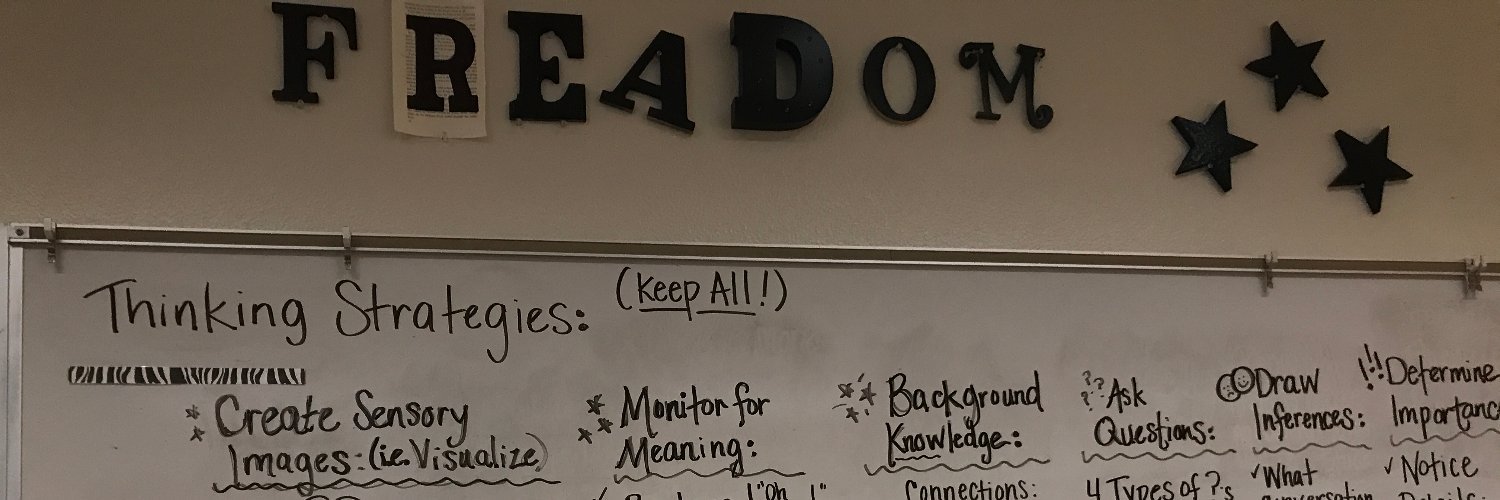 FREADOM
Thinking Strategies: (Keep All!)
Create Sensory
Images: (i.e. Visualize)
Monitor for
Meaning:
Background
Knowledge:
??? Ask
Questions:
Draw
Inferences:
!!! Determine
Importanc
Connections:
4 Types of ?'s
"Oh
✓What
✓Notice